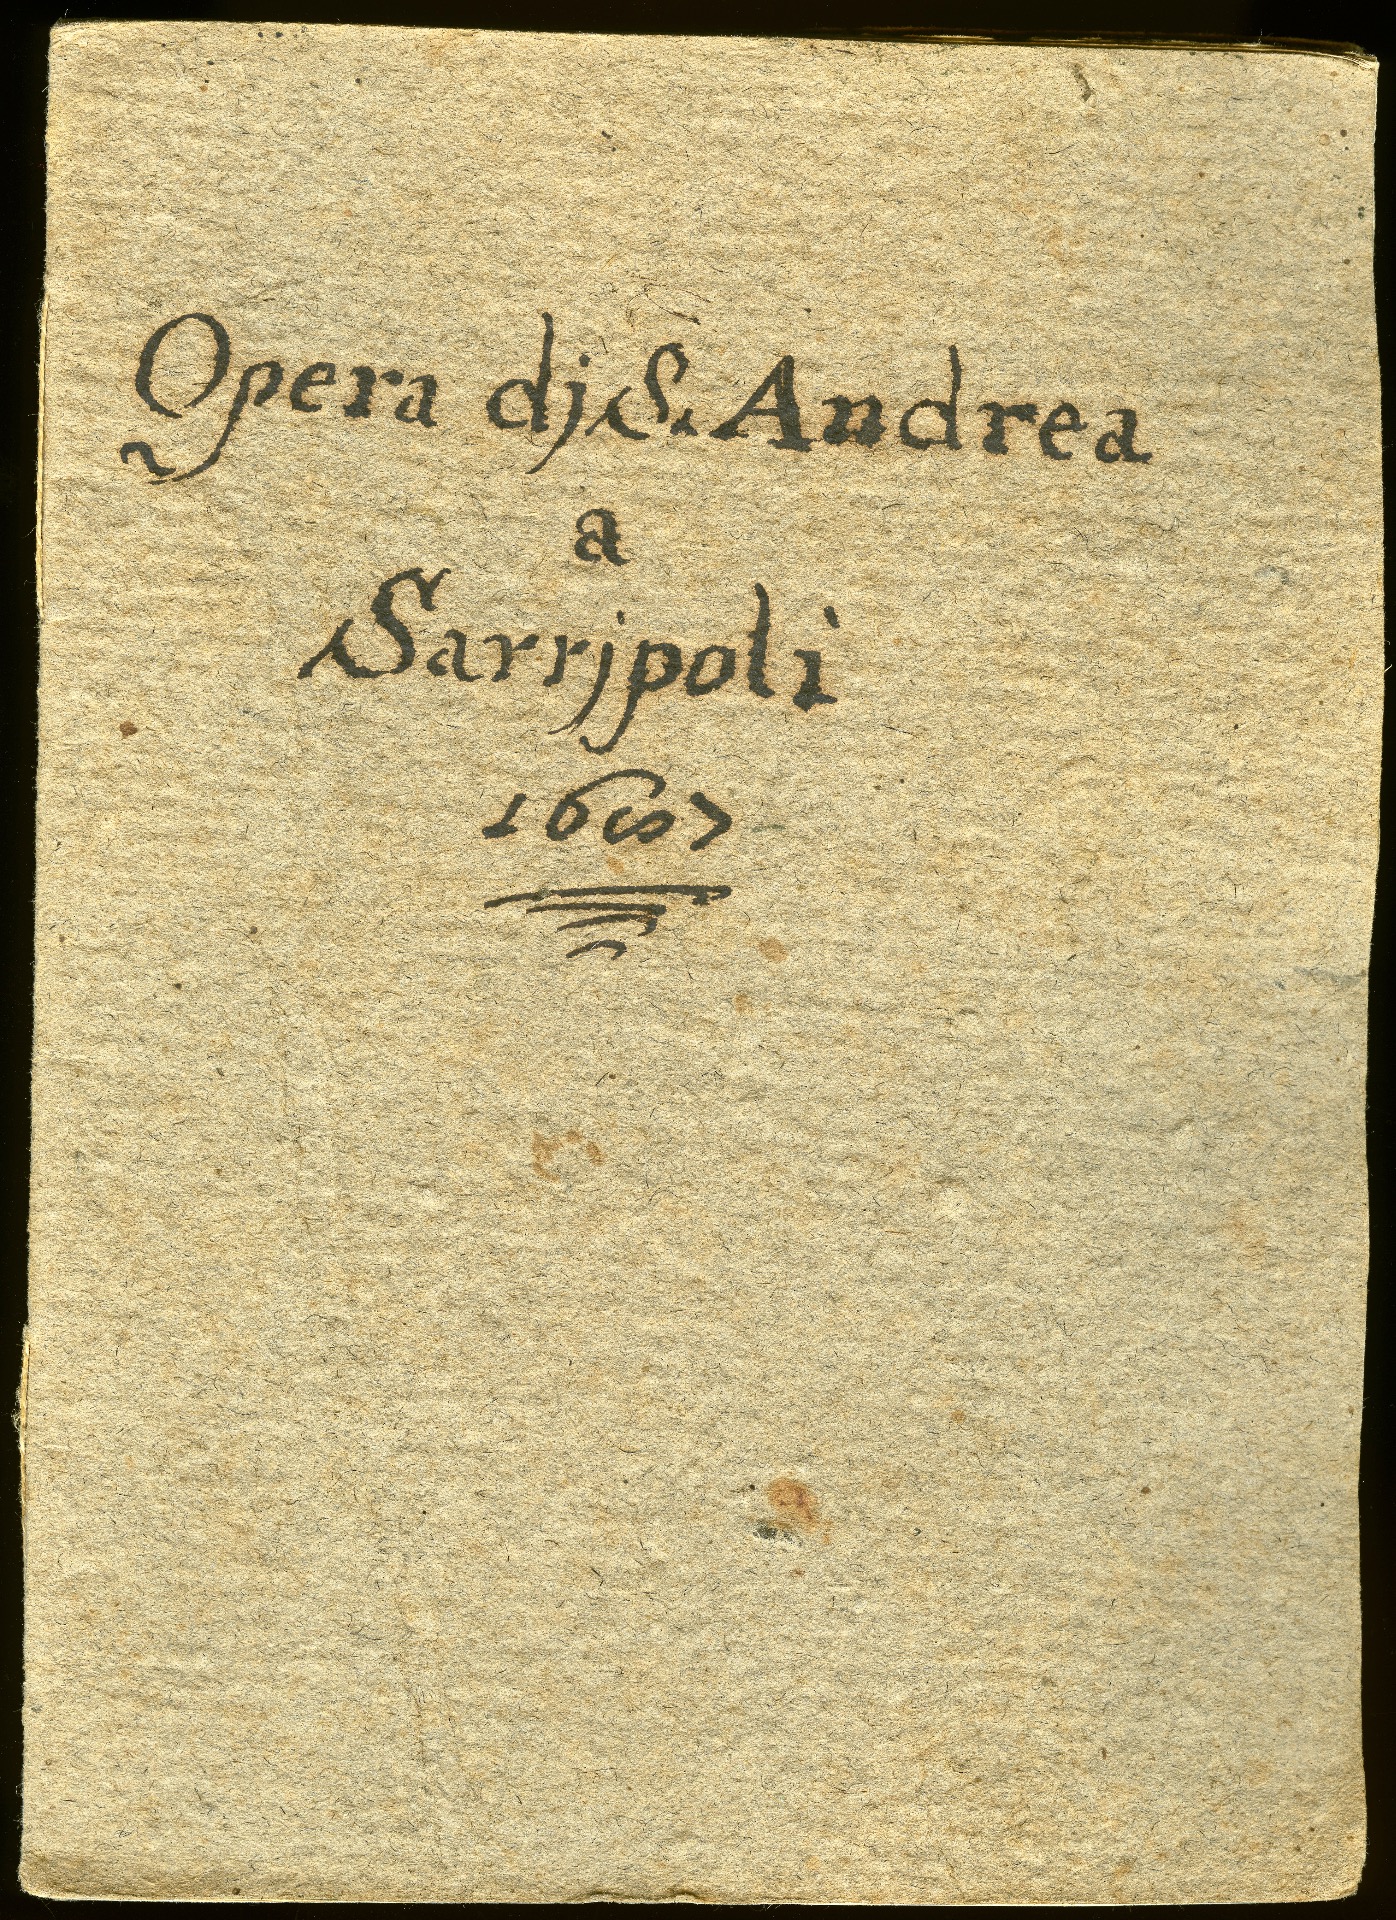 Opera dj S. Andrea
a
Sarrjpoli
1687